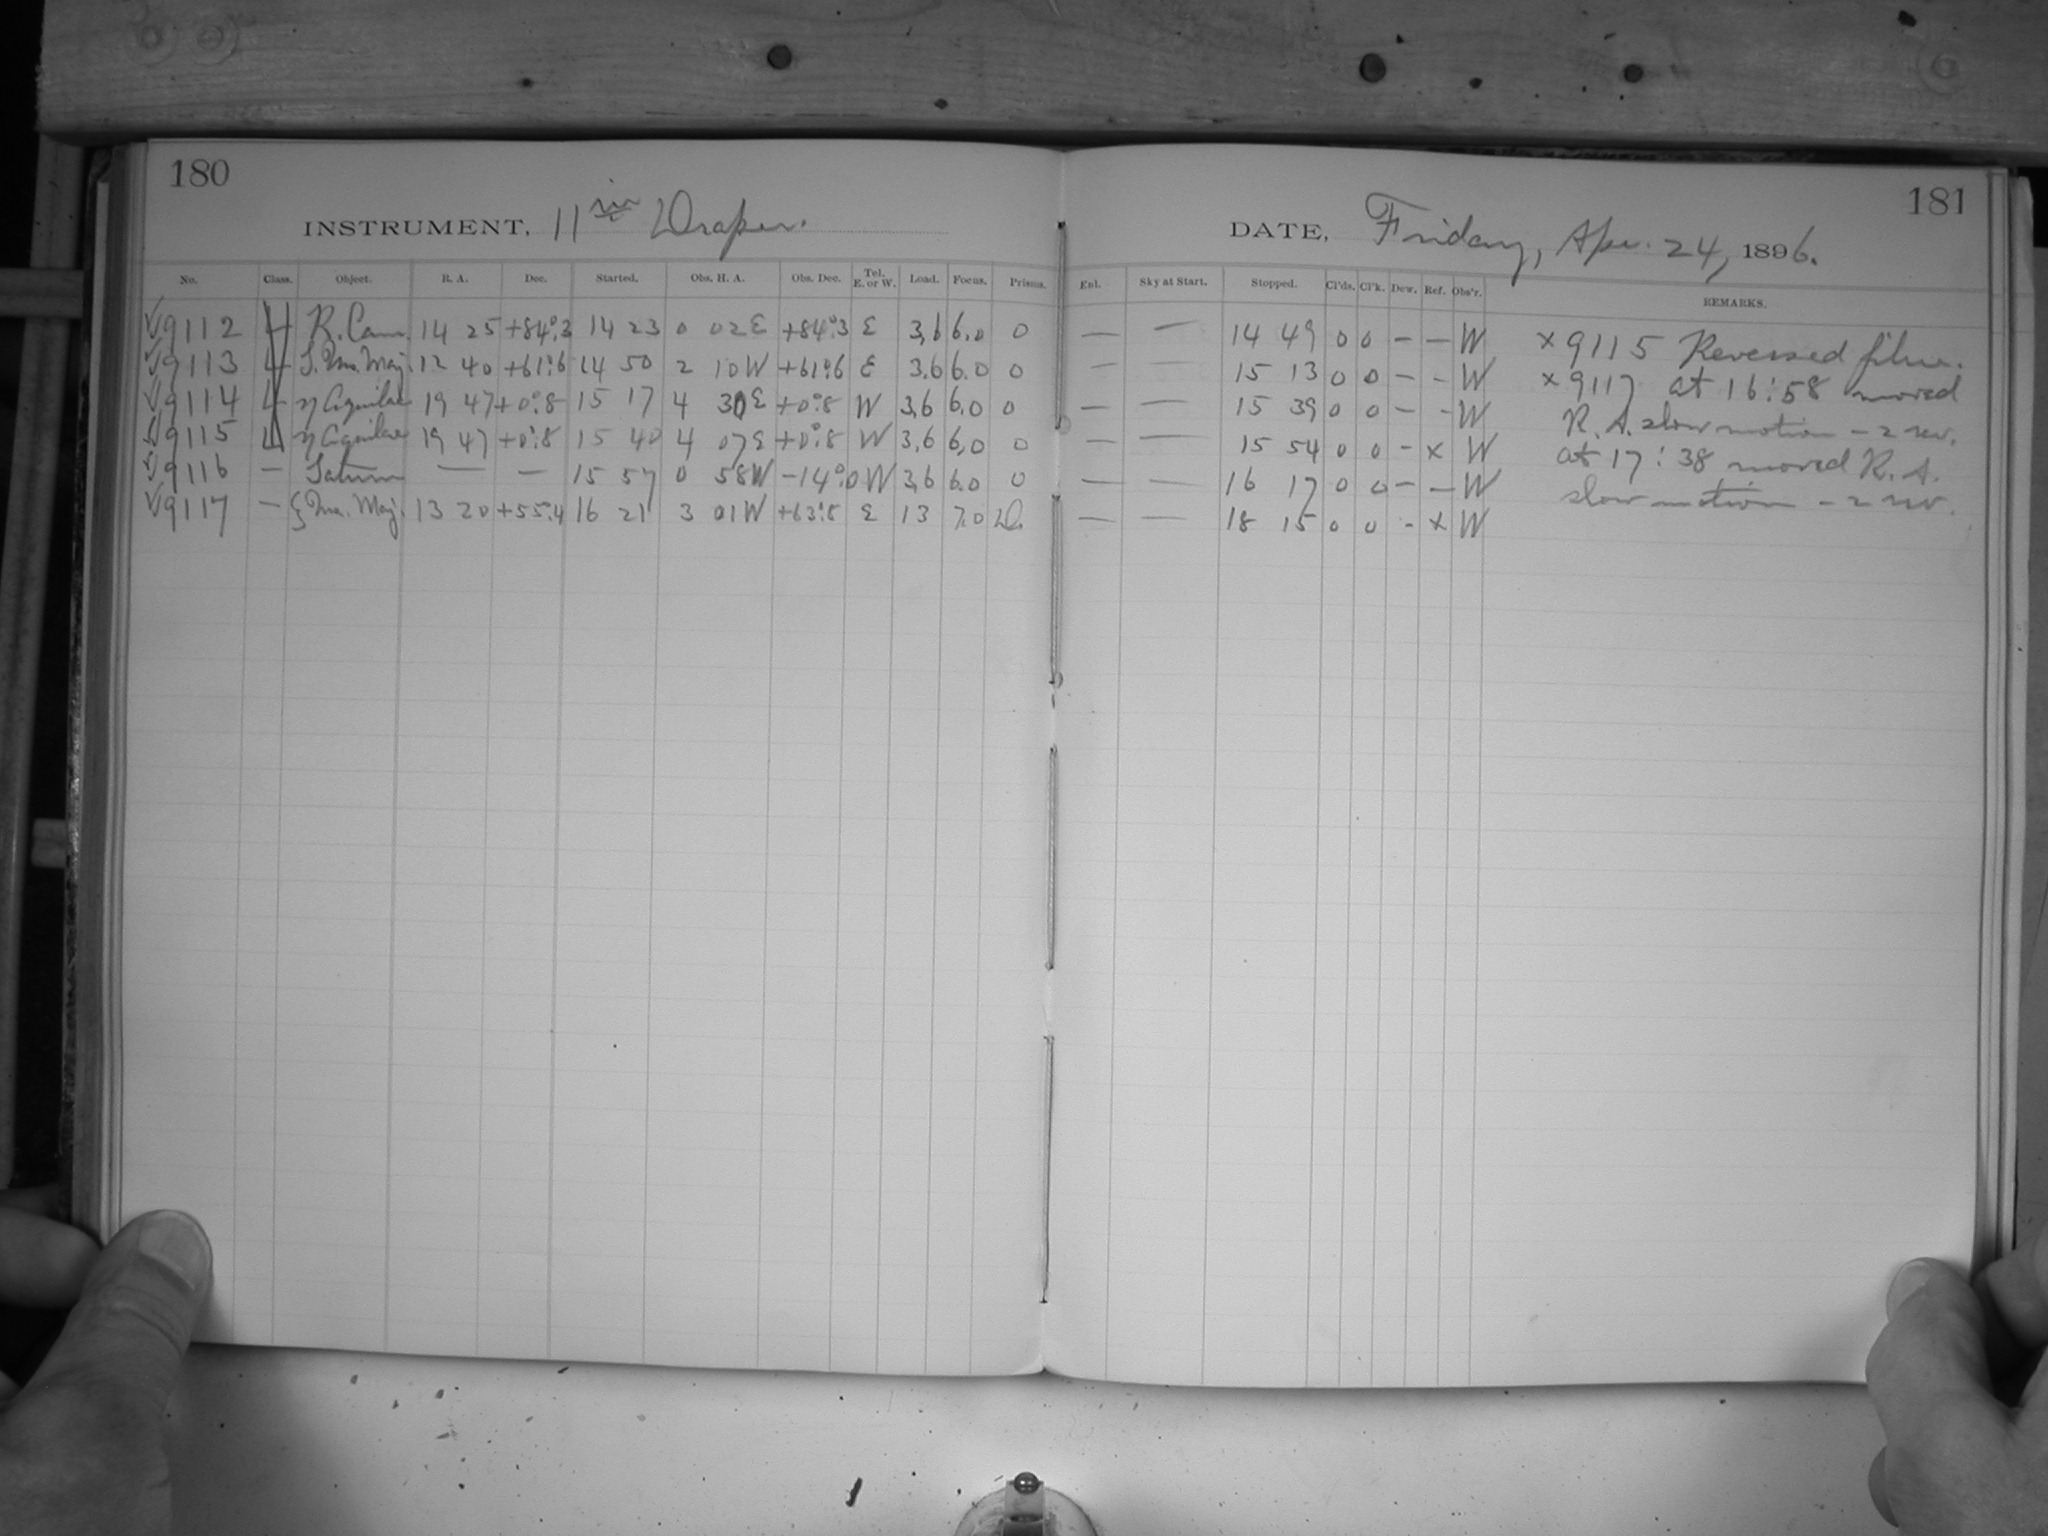 180
INSTRUMENT, 11 in Draper.
No. Class. Object. R. A. Dec. Started. Obs. H. A. Obs. Dec. Tel. E. or W. Load. Focus. Prisms.
√9112 4 R. Cam. 14 25 +84°.3 14 23 0 02 E +84°.3 E 3,6 6.0 0
√9113 4 T. Urs. Maj. 12 40 +61°.6 14 50 2 10 W +61°.6 E 3.6 6.0 0
√9114 4 η Aquilae 19 47 +0°.8 15 17 4 30 E +0°.8 W 3,6 6,0 0
√9115 4 η Aquilae 19 47 +0°.8 15 40 4 07 E +0°.8 W 3,6 6,0 0
√9116 — Saturn — — 15 57 0 58 W −14°.0 W 3,6 6.0 0
√9117 — ξ Urs. Maj. 13 20 +55°.4 16 21 3 01 W +63°.8 E 13 7.0 D.
181
DATE, Friday, Apr. 24, 1896.
Enl. Sky at Start. Stopped. Cl'ds. Cl'k. Dew. Ref. Obs'r. REMARKS.
— — 14 49 0 0 – — W × 9115 Reversed film.
— — 15 13 0 0 – – W × 9117 at 16:58 moved
— — 15 39 0 0 – – W R. A. slow motion – 2 rev.
— — 15 54 0 0 – × W at 17:38 moved R. A.
— — 16 17 0 0 – — W slow motion – 2 rev.
— — 18 15 0 0 – × W